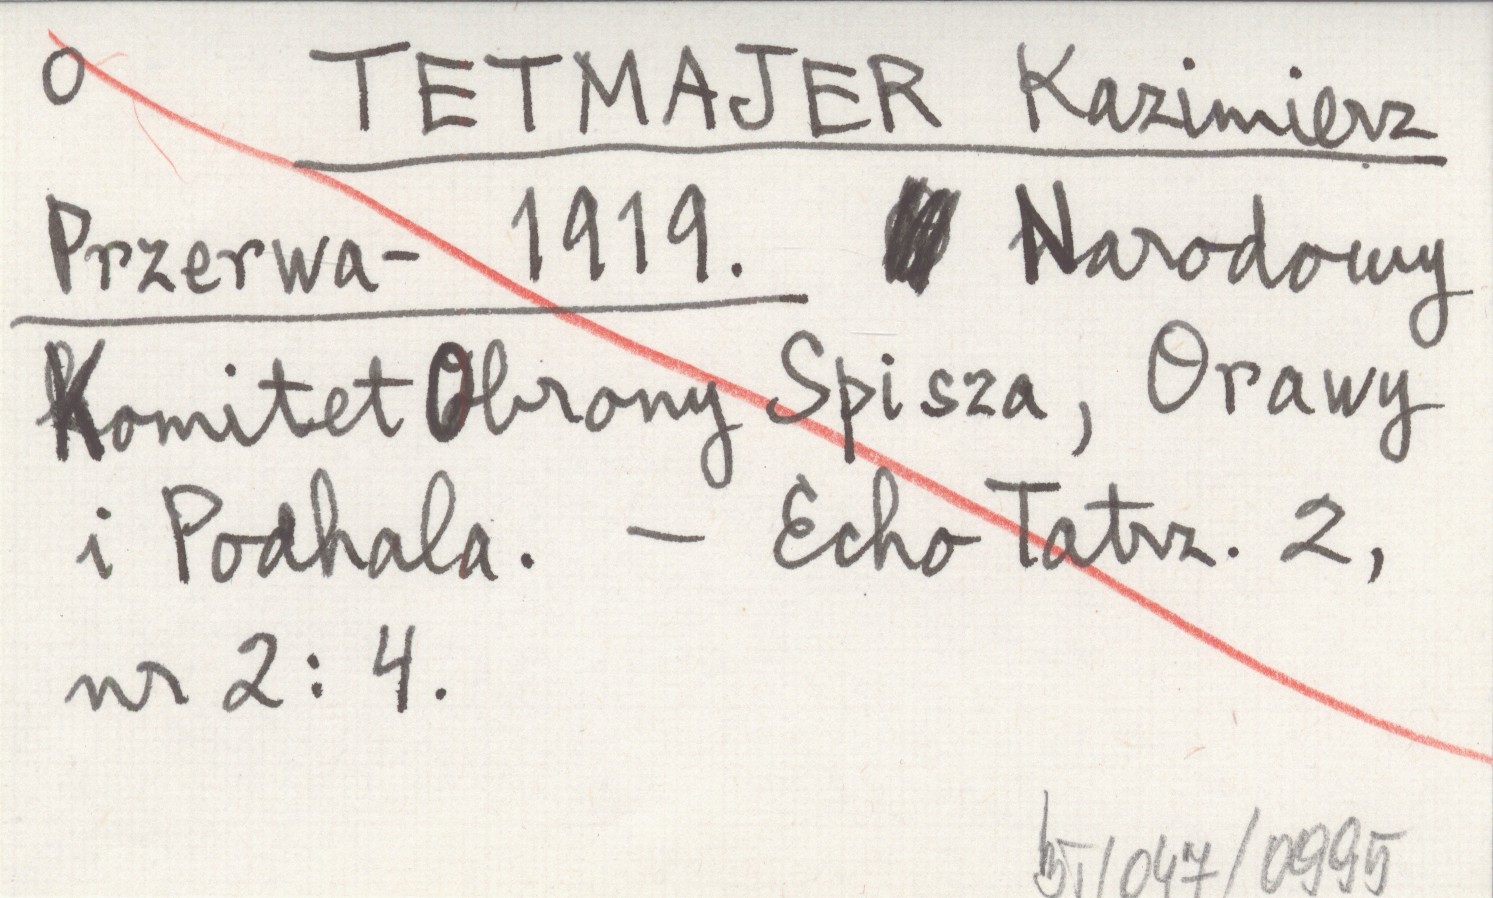 O TETMAJER Kazimierz
Przerwa- 1919. Narodowy
Komitet Obrony Spisza, Orawy
i Podhala. — Echo Tatrz. 2,
nr 2: 4.
/047/0995